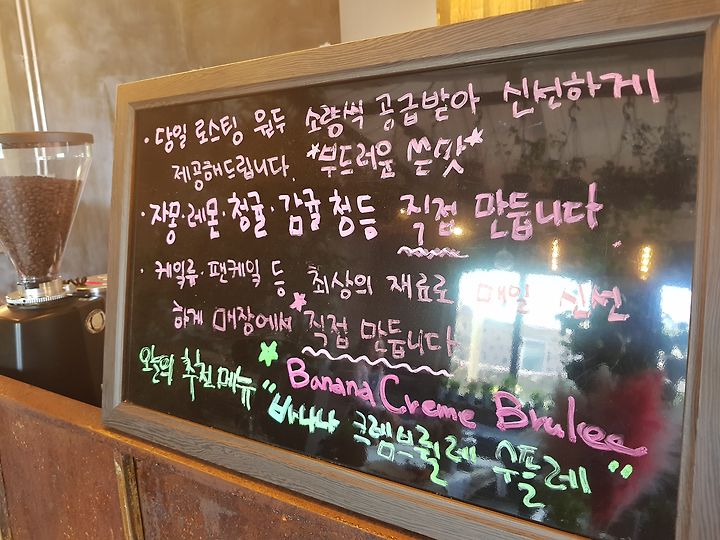 · 당일 로스팅 원두 소량씩 공급받아 신선하게
제공해드립니다. *부드러움 쓴맛*
· 자몽·레몬·청귤·감귤청등 직접 만듭니다
· 케익류·팬케익 등 최상의 재료로 매일 신선
하게 매장에서 직접 만듭니다
오늘의 추천 메뉴 Banana Creme Brulee
"바나나 크렘브륄레 수플레"